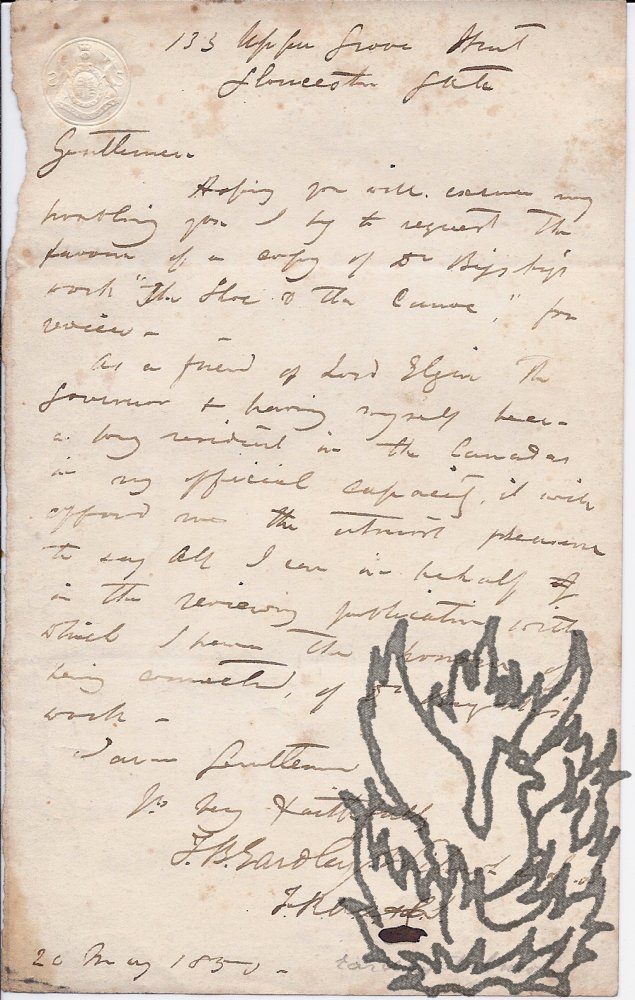 133 Upper Grove Street
Gloucester Gate
Gentlemen
Hoping you will excuse my
troubling you I beg to request the
favour of a copy of Dr Bigsby's
work "The Shoe & the Canoe," for
review -
As a friend of Lord Elgin the
Governor & having myself been
a long resident in the Canadas
in my official capacity, it will
afford me the utmost pleasure
to say all I can in behalf of
in the reviewing publication with
which I have the honour of
being connected, of Dr Bigsby's
work -
I am Gentlemen
Yrs very faithfully
F.B. Eardley
20 May 1850 -